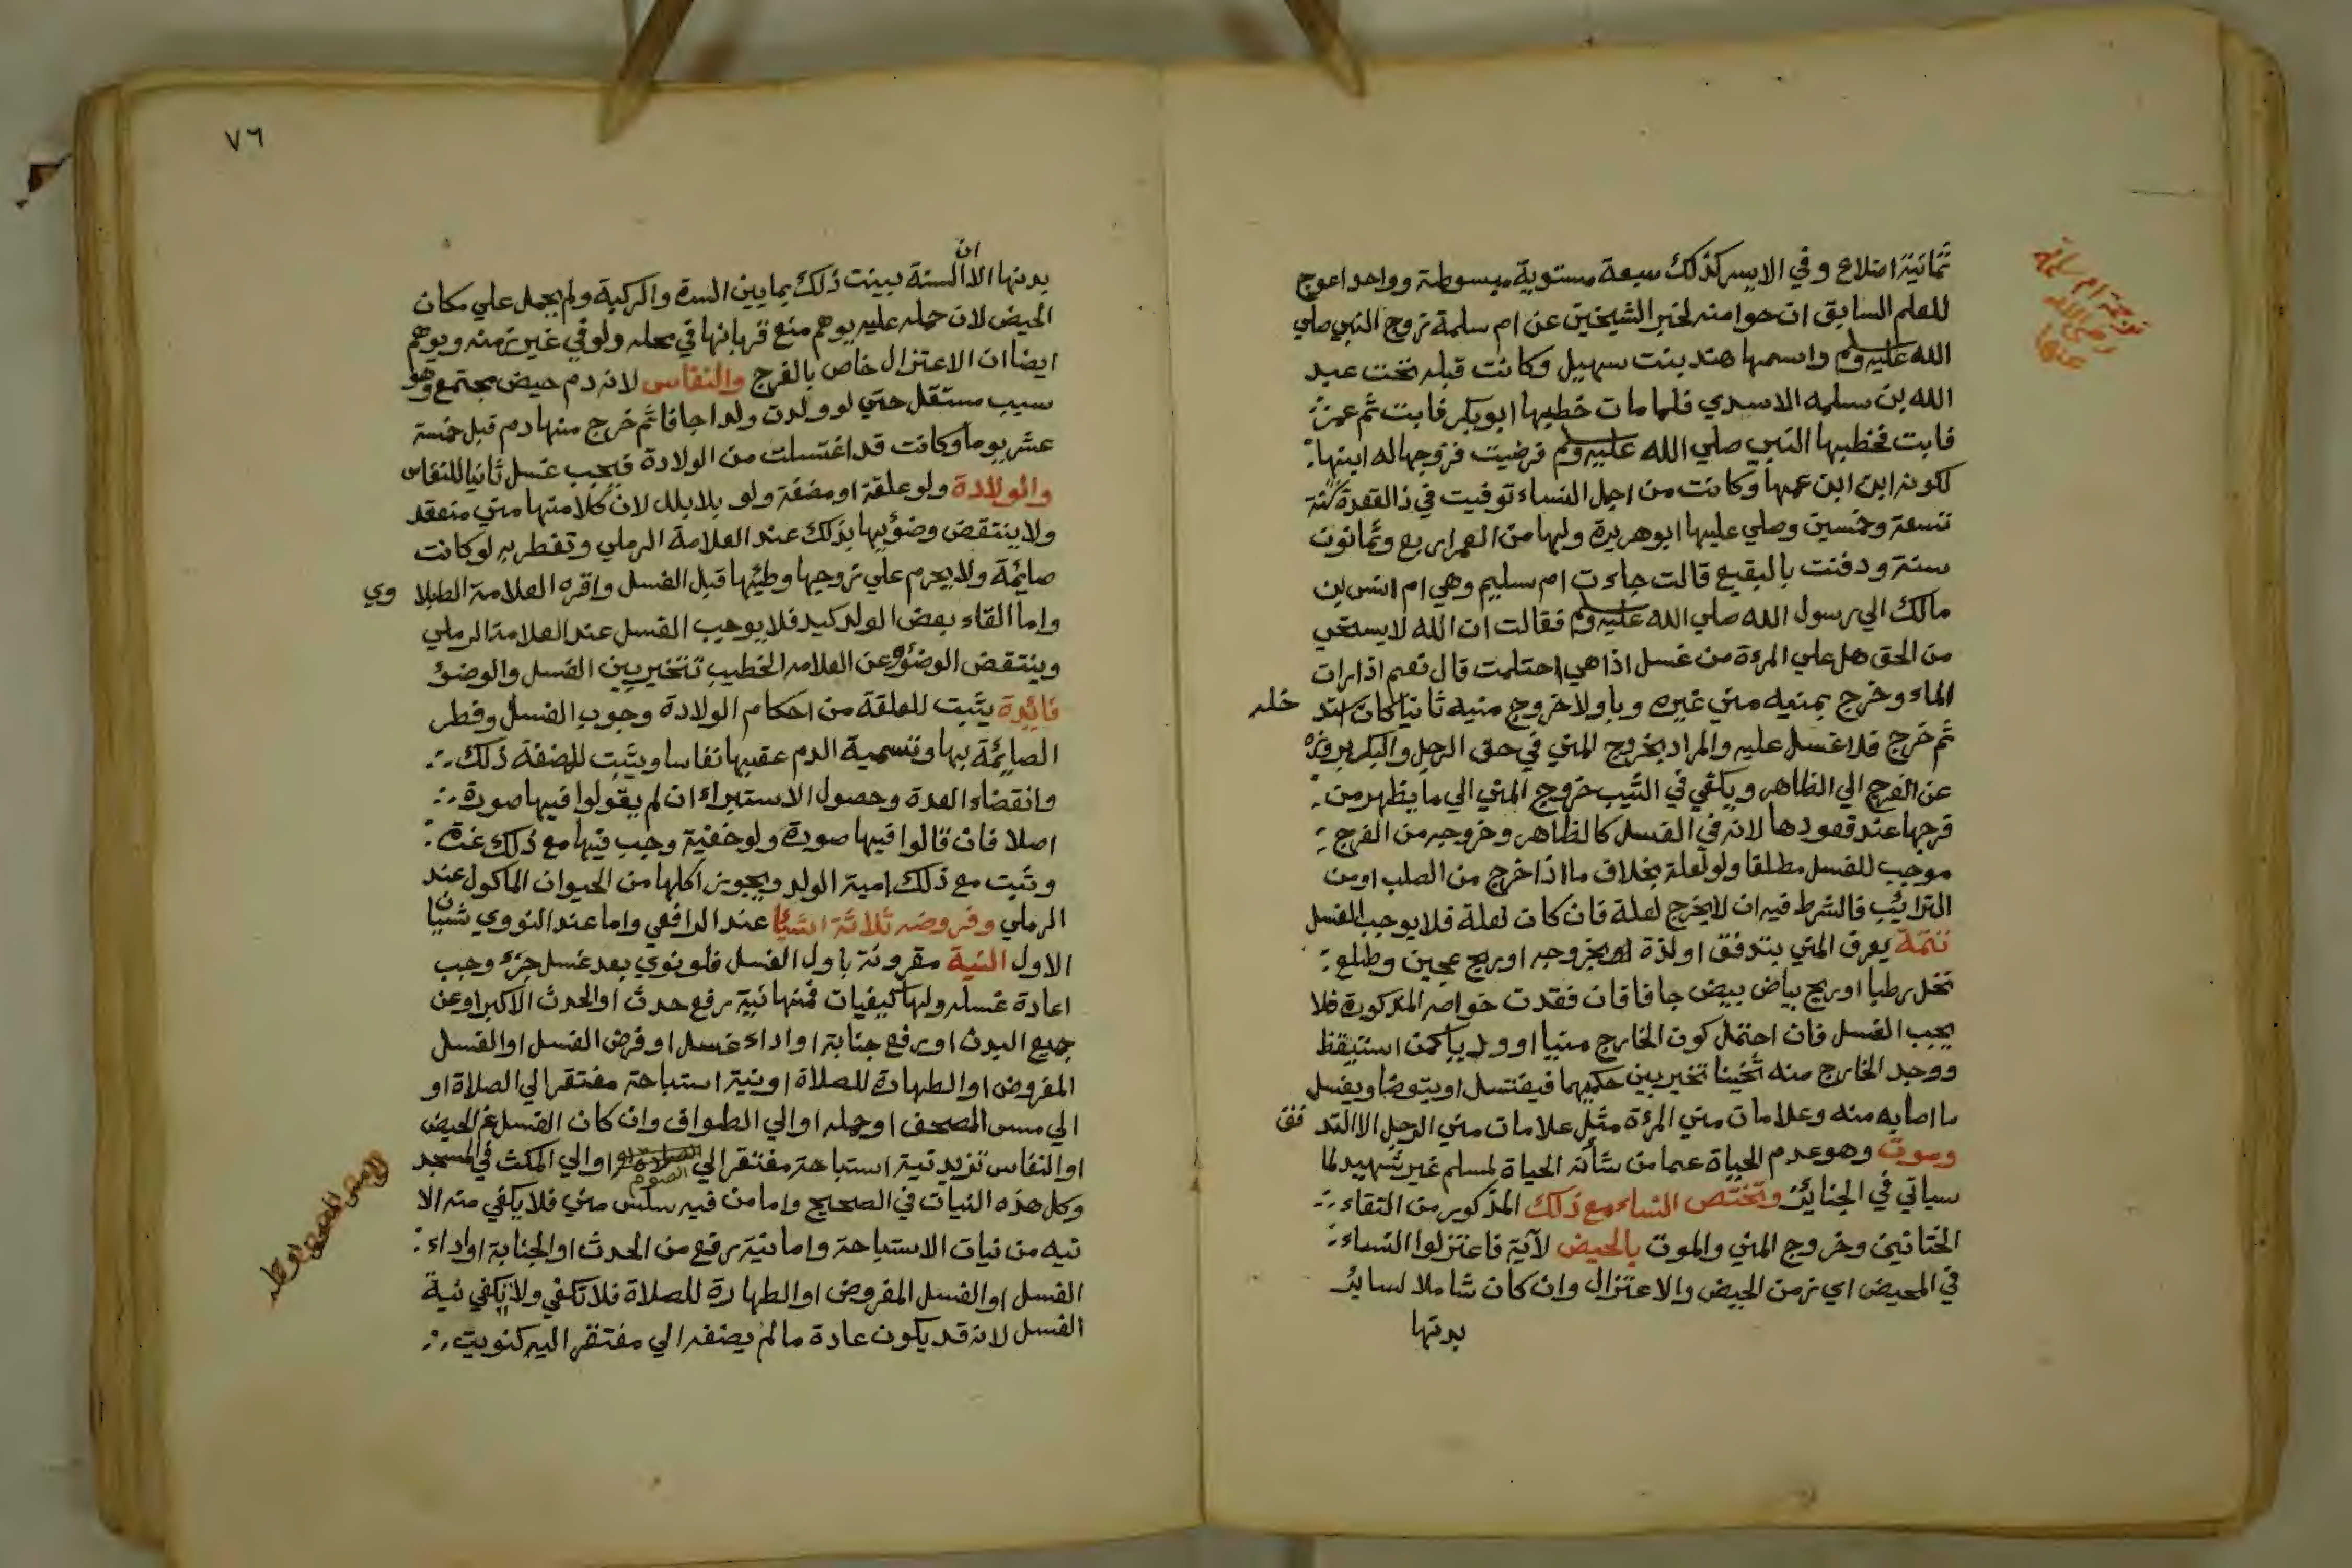 ثمانية اضلاع وفي الايسر كذلك سبعة مستوية مبسوطة وواحد اعوج
للعلم السابق ان حوا منه لخبر الشيخين عن ام سلمة زوج النبي صلي
الله عليه وسلم واسمها هند بنت سهيل وكانت قبله تحت عبد
الله بن سلمه الاسدي فلما مات خطبها ابو بكر فابت ثم عمر
فابت فخطبها النبي صلي الله عليه وسلم فرضيت فزوجها له ابنها
لكونه ابن ابن عمها وكانت من اجل النساء توفيت في ذا القعدة سنة
تسعة وخمسين وصلي عليها ابو هريرة ولها من العمر اربع وثمانون
سنة ودفنت بالبقيع قالت جاءت ام سليم وهي ام انس بن
مالك الي رسول الله صلي الله عليه وسلم فقالت ان الله لا يستحي
من الحق هل علي المرءة من غسل اذا هي احتلمت قال نعم اذا رات
الماء وخرج بمنيه مني غيره وباولا خروج منيه ثانيا كان استد خله
ثم خرج فلا غسل عليه والمراد بخروج المني في حق الرجل والبكر بروزه
عن الفرج الي الظاهر ويكفي في الثيب خروج المني الي ما يظهر من
فرجها عند قعودها لانه في الغسل كالظاهر وخروجه من الفرج
موجب للغسل مطلقا ولو لعلة بخلاف ما اذا خرج من الصلب او من
الترايب فالشرط فيه ان لا يخرج لعلة فان كان لعلة فلا يوجب الغسل
تتمة يعرف المني بتدفق او لذة بخروجه او ريح عجين وطلع
نخل رطبا او ريح بياض بيض جافا فان فقدت خواصه المذكورة فلا
يجب الغسل فان احتمل كون الخارج منيا او وديا كمن استيقظ
ووجد الخارج منه ثخينا تخير بين حكمهما فيغتسل او يتوضا ويغسل
ما اصابه منه وعلامات مني المرءة مثل علامات مني الرجل الا التد فق
وموت وهو عدم الحياة عما من شأنه الحياة لمسلم غير شهيد لما
سياتي في الجنايز وتختص النساء مع ذلك المذكور من التقاء
الختانين وخروج المني والموت بالحيض لآية فاعتزلوا النساء
في المحيض اي زمن الحيض والاعتزال وان كان شاملا لساير
بدنها
ترجمة ام سلمة
رضي الله
عنها
٧٦
بدنها الا ان السنة بينت ذلك بما بين السرة والركبة ولم يحمل علي مكان
الحيض لان حمله عليه يوهم منع قربانها في محله ولو في غير زمنه ويوهم
ايضا ان الاعتزال خاص بالفرج والنفاس لانه دم حيض مجتمع وهو
سبب مستقل حتي لو ولدت ولدا جافا ثم خرج منها دم قبل خمسة
عشر يوما وكانت قد اغتسلت من الولادة فيجب غسل ثانيا للنفاس
والولادة ولو علقة او مضغة ولو بلا بلل لان كلا منها مني منعقد
ولا ينتقض وضؤيها بذلك عند العلامة الرملي وتفطر به لو كانت
صايمة ولا يحرم علي زوجها وطئها قبل الغسل واقره العلامة الطبلا وي
واما القاء بعض الولد كيد فلا يوجب الغسل عند العلامة الرملي
وينتقض الوضؤ وعن العلامه الخطيب تتخير بين الغسل والوضؤ
فايدة يثبت للعلقة من احكام الولادة وجوب الغسل وفطر
الصايمة بها وتسمية الدم عقبها نفاسا ويثبت للمضغة ذلك
وانقضاء العدة وحصول الاستبراء ان لم يقولوا فيها صورة
اصلا فان قالوا فيها صورة ولو خفية وجب فيها مع ذلك غرة
وثبت مع ذلك امية الولد ويجوز اكلها من الحيوان الماكول عند
الرملي وفروضه ثلاثة اشيا عند الرافعي واما عند النووي شيئان
الاول النية مقرونة باول الغسل فلو نوي بعد غسل جزء وجب
اعادة غسله ولها كيفيات فمنها نية رفع حدث او الحدث الاكبر او عن
جميع البدن او رفع جنابة او اداء غسل او فرض الغسل او الغسل
المفروض او الطهارة للصلاة او نية استباحة مفتقر الي الصلاة او
الي مس المصحف او حمله او الي الطواف وان كان الغسل عن الحيض
او النفاس تزيد نية استباحة مفتقر الي الصوم او الي المكث في المسجد
وكل هذه النيات في الصحيح واما من فيه سلس مني فلا يكفي منه الا
نيه من نيات الاستباحة واما نية رفع من الحدث او الجنابة او اداء
الغسل او الغسل المفروض او الطهارة للصلاة فلا تكفي ولا تكفي نية
الغسل لانه قد يكون عادة ما لم يضفه الي مفتقر اليه كنويت
المصحف او حمله